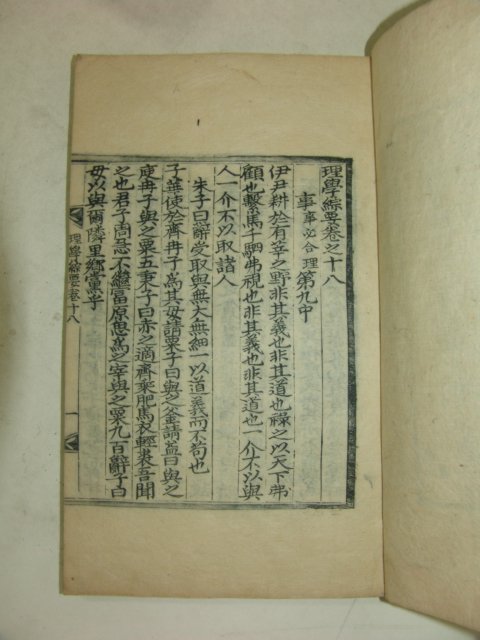 理學綜要卷之十八
事事必合理第九中
伊尹耕於有莘之野非其義也非其道也祿之以天下弗
顧也繫馬千駟弗視也非其義也非其道也一介不以與
人一介不以取諸人
朱子曰辭受取與無大無細一以道義而不苟也
子華使於齊冉子爲其母請粟子曰與之釜請益曰與之
庾冉子與之粟五秉子曰赤之適齊乘肥馬衣輕裘吾聞
之也君子周急不繼富原思爲之宰與之粟九百辭子曰
毋以與爾隣里鄕黨乎
理學綜要卷十八
一